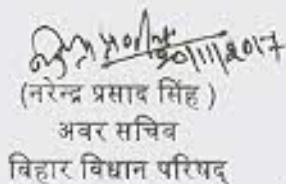 20/11/2017
(नरेन्द्र प्रसाद सिंह )
अवर सचिव
विहार विधान परिषद्